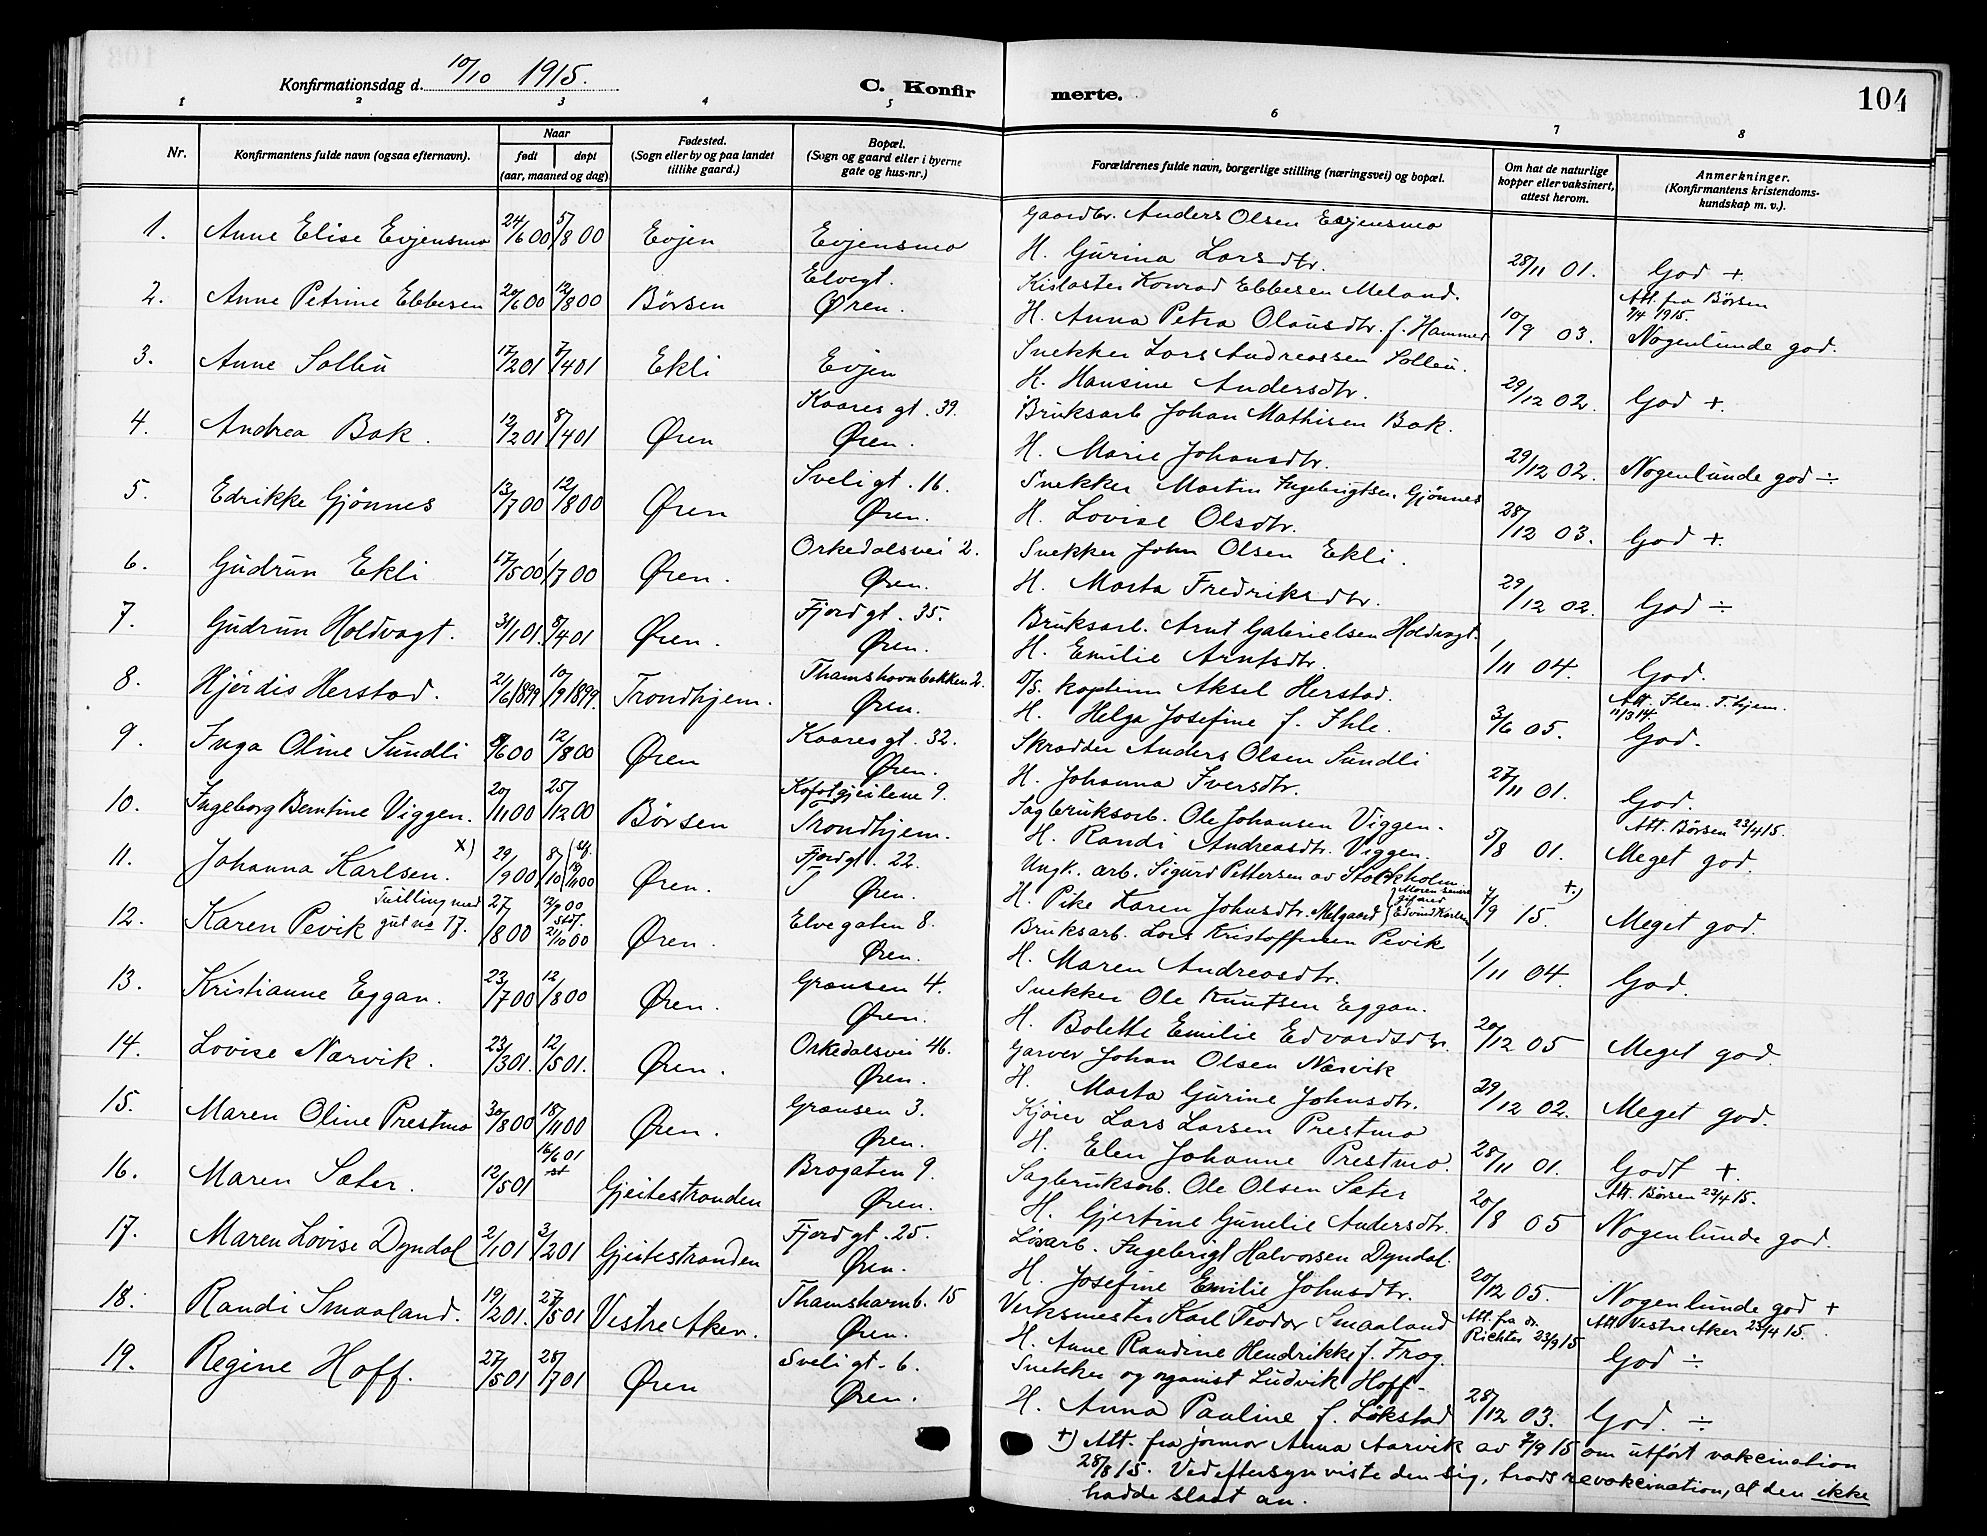 Konfirmationsdag d. 10/10 1915.
C. Konfirmerte.
104
1 2 3 4 5 6 7 8
Nr.
Konfirmantens fulde navn (ogsaa efternavn).
Naar
født døpt
(aar, maaned og dag)
Fødested.
(Sogn eller by og paa landet
tillike gaard.)
Bopæl.
(Sogn og gaard eller i byerne
gate og hus-nr.)
Forældrenes fulde navn, borgerlige stilling (næringsvei) og bopæl.
Om hat de naturlige
kopper eller vaksinert,
attest herom.
Anmerkninger.
(Konfirmantens kristendoms-
kundskap m. v.).
1. Anne Elise Evjensmo 24/6 00 5/8 00 Evjen Evjensmo
Gaardbr. Anders Olsen Evjensmo
H. Gurina Larsdtr. 28/11 01. God +
2. Anne Petrine Ebbesen 20/6 00 12/8 00 Børsen Elvegt. Øren.
Konrad Ebbesen Meland. Att. fra Børsen 1915.
H. Anna Petra Olausdtr. f. Hammer 10/9 03. Nogenlunde god.
3. Anne Solliu 17/2 01 7/4 01 Ekli Evjen
Snekker Lars Andreassen Solliu.
H. Hansine Andersdtr. 29/12 02. God +.
4. Andrea Bak. 12/2 01 8/4 01 Øren Kaares gt. 39. Øren.
Bruksarb Johan Mathisen Bak.
H. Marie Johansdtr. 29/12 02. Nogenlunde god ÷
5. Edrikke Gjønnes 13/7 00 12/8 00 Øren Sveligt. 16. Øren.
Snekker Martin Ingebrigtsen Gjønnes
H. Lovise Olsdtr. 28/12 03. God +.
6. Gudrun Ekli 17/5 00 1/7 00 Øren. Orkedalsvei 2. Øren.
Snekker John Olsen Ekli.
H. Marta Fredriksdtr. 29/12 02. God ÷
7. Gudrun Holdvagt. 31/1 01. 8/4 01 Øren. Fjordgt. 35. Øren.
Bruksarb. Arnt Gabrielsen Holdvagt.
H. Emilie Arntsdtr. 1/11 04. God.
8. Hjørdis Herstad. 21/6 1899 10/9 1899. Trondhjem. Thamshavnbakken 2. Øren.
D/S. kaptein Aksel Herstad. Att. Ilen. T.hjem. 11/3 14.
H. Helga Josefine f. Ihle. 3/6 05. God.
9. Inga Oline Sundli 8/6 00 12/8 00 Øren Kaares gt. 32. Øren.
Skrædder Anders Olsen Sundli
H. Johanna Iversdtr. 27/11 01. God.
10. Ingeborg Berntine Viggen. 20/11 00 25/12 00 Børsen 9. Trondhjem.
Sagbruksarb. Ole Johansen Viggen. Att. Børsen 23/4 15.
H. Randi Andreasdtr. Viggen. 5/8 01. Meget god.
11. Johanna Karlsen. x) 29/9 00 8/10 Øren. Fjordgt. 22. Øren.
Ungk. arb. Sigurd Pettersen av Stockholm
H. Pike Karen Johnsdtr. Melgaard (Moren senere gift med Edvind Karlsen 7/9 15. +) Meget god.
12. Karen Pevik Tvilling med gut no 17. 27/8 00 12/9 00 stdf. 21/10 00 Øren. Elvegaten 8. Øren.
Bruksarb. Lars Kristoffersen Pevik
H. Maren Andreasdtr. 1/11 04. God.
13. Kristianne Eggan. 23/7 00 12/8 00 Øren. Grænsen 4. Øren.
Snekker Ole Knutsen Eggan.
H. Bolette Emilie Edvardsdtr. 20/12 05 Meget god.
14. Lovise Nærvik. 23/3 01. 12/5 01. Øren. Orkedalsvei 46. Øren.
Garver Johan Olsen Nærvik
H. Marta Gurine Johnsdtr. 29/12 02. Meget god.
15. Maren Oline Prestmo 30/8 00 18/11 00 Øren. Grænsen 3. Øren.
Kjører Lars Larsen Prestmo
H. Elen Johanne Prestmo. 28/11 01. Godt +
16. Maren Sæter. 12/5 01 16/6 01 st Gjeitestranden Brogaten 9. Øren.
Sagbruksarb. Ole Olsen Sæter Att. Børsen 23/4 15.
H. Gjertine Gunelie Andersdtr. 20/8 05 Nogenlunde god.
17. Maren Lovise Dyndal 2/1 01 3/2 01 Gjeitestranden Fjordgt. 25. Øren.
Løsarb. Ingebrigt Halvorsen Dyndal.
H. Josefine Emilie Johnsdtr. 20/12 05. Nogenlunde god +
18. Randi Smaaland. 19/2 01. 27/5 01 Vestre Aker. Thamshavnb. 15 Øren.
Verksmester Karl Teodor Smaaland Att. fra dr. Richter 23/9 15 Att Vestre Aker 23/4 15.
H. Anne Randine Hendrikke f. Frog. God ÷
19. Regine Hoff. 27/5 01 28/7 01 Øren Sveligt. 6. Øren.
Snekker og organist Ludvik Hoff.
H. Anna Pauline f. Løkstad 28/12 03. God. ÷
+) Att. fra jormor Anna Aarvik av 7/9 15 om utført vakcination
28/8 15. Ved eftersyn viste den sig, trods revakcination, at den ikke
hadde slaat an.